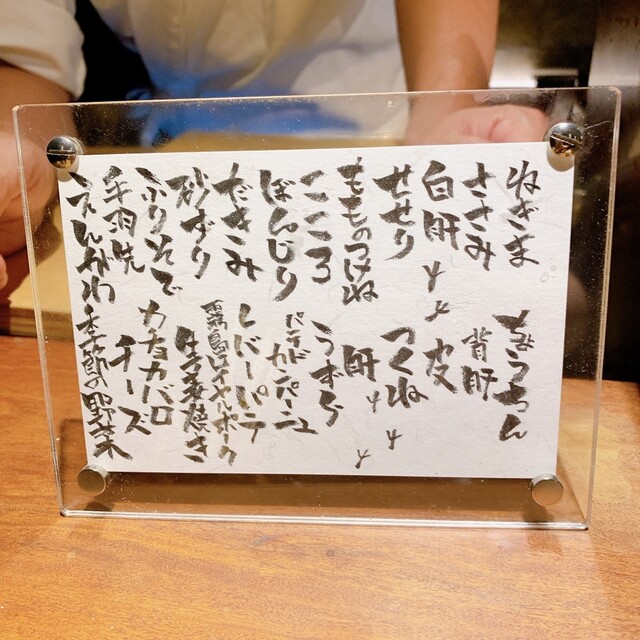 ねぎま
ささみ
白肝
せせり
もものつけね
こころ
ぼんじり
だきみ
砂ずり
ふりそで
手羽先
えんがわ
ちょうちん
背肝
皮
つくね
肝
うずら
パテドカンパーニュ
レバーパテ
霧島ロイヤルポーク
生姜焼き
カチョカバロ
チーズ
季節の野菜